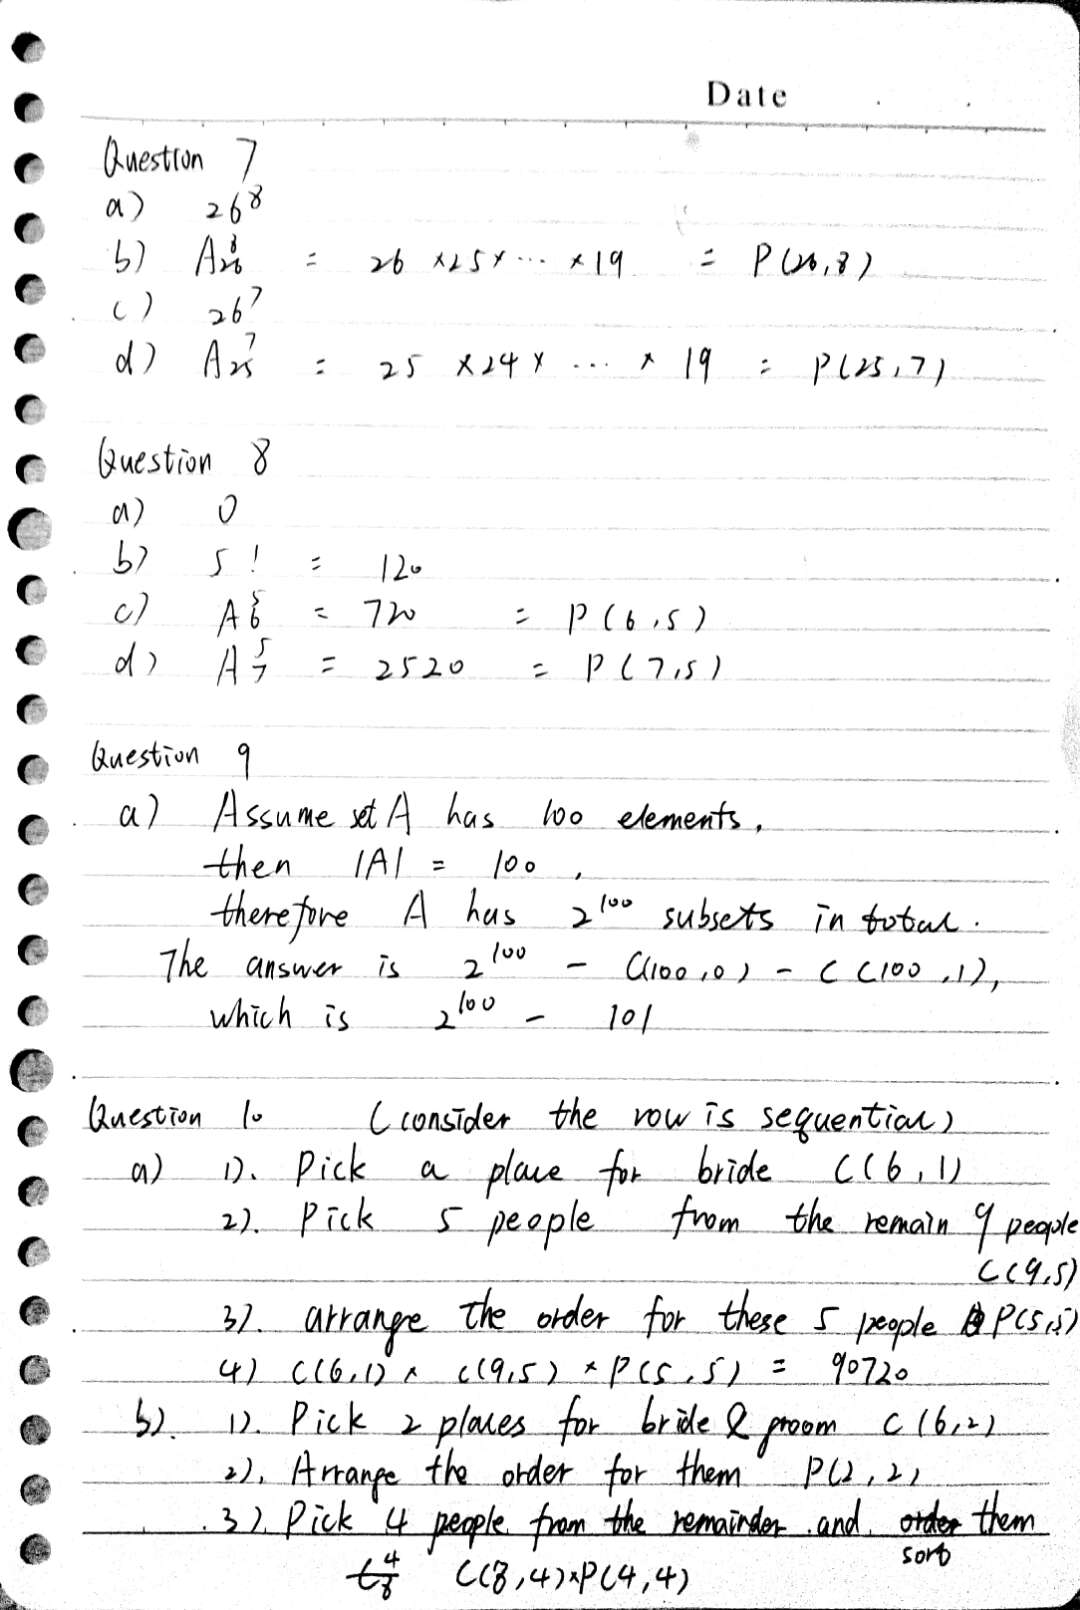 Date
Question 7
a) 26^8
b) A_26^8 = 26 × 25 × ... × 19 = P(26,8)
c) 26^7
d) A_25^7 = 25 × 24 × ... × 19 = P(25,7)
Question 8
a) 0
b) 5! = 120
c) A_6^5 = 720 = P(6,5)
d) A_7^5 = 2520 = P(7,5)
Question 9
a) Assume set A has 100 elements,
then |A| = 100,
therefore A has 2^100 subsets in total.
The answer is 2^100 - C(100,0) - C(100,1),
which is 2^100 - 101
Question 10 (consider the row is sequential)
a) 1). Pick a place for bride C(6,1)
2). Pick 5 people from the remain 9 people
C(9,5)
3). arrange the order for these 5 people P(5,5)
4) C(6,1) × C(9,5) × P(5,5) = 90720
b). 1). Pick 2 places for bride & groom C(6,2)
2). Arrange the order for them P(2,2)
3). Pick 4 people from the remainder and order them
sort
C(8,4)×P(4,4)